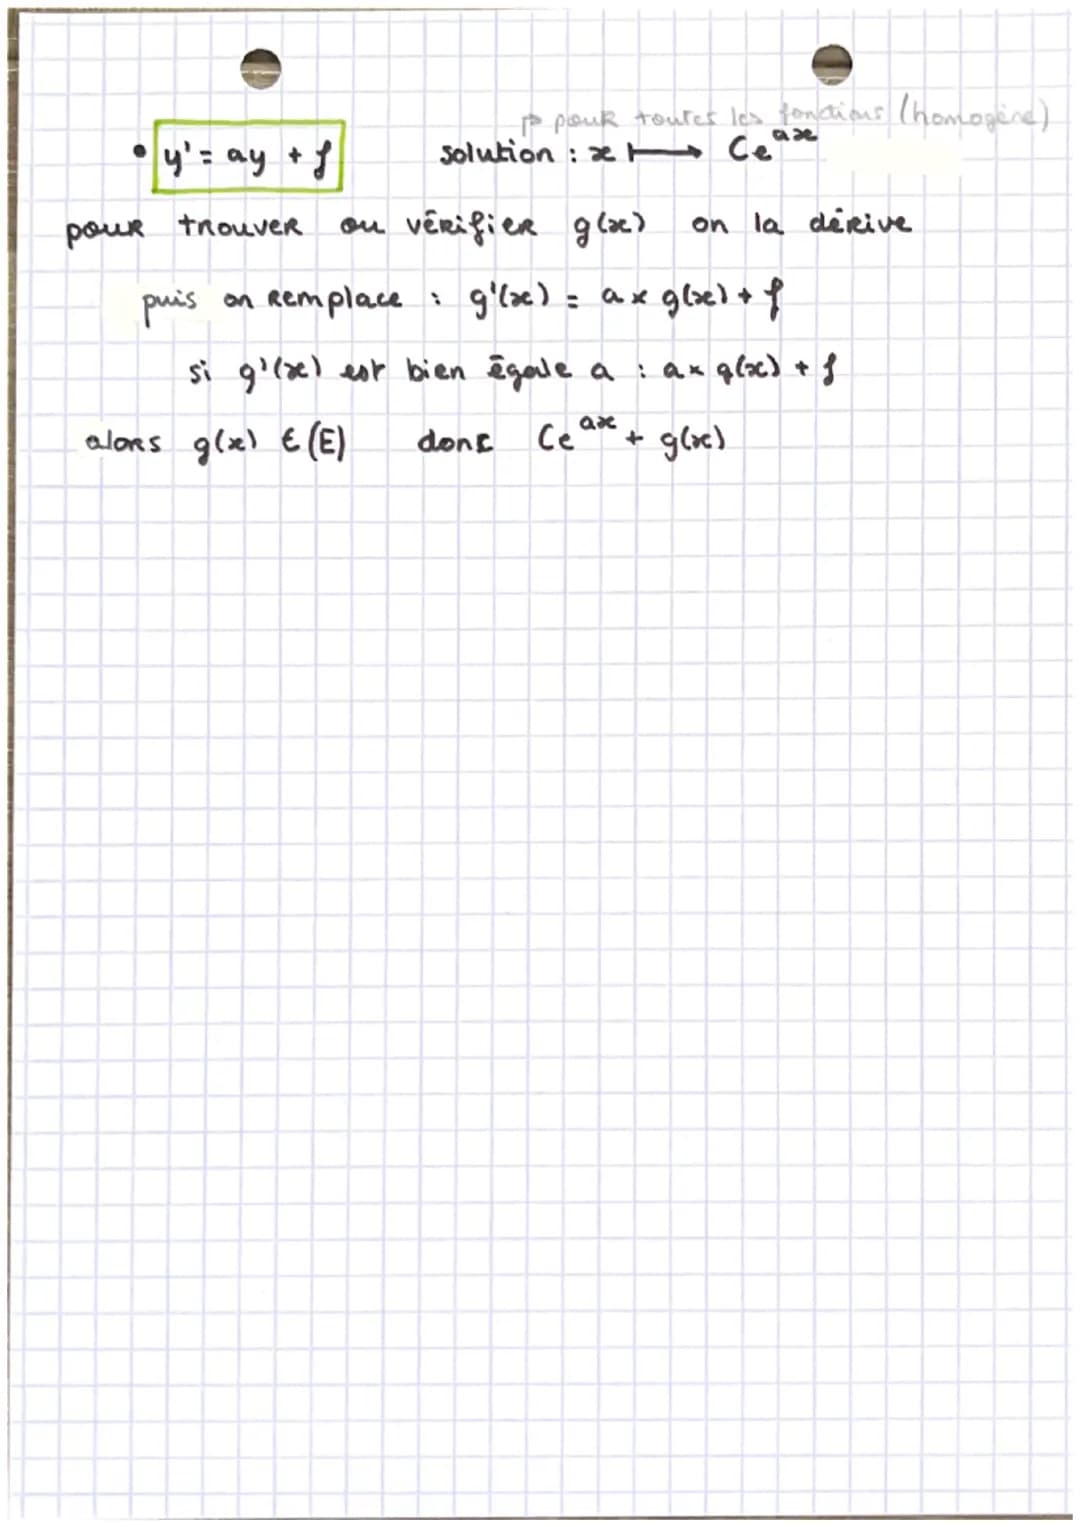 ↱ pour toutes les fonctions (homogène)
• y' = ay + f solution : x ⟼ Ce^{ax}
pour trouver ou vérifier g(x) on la dérive
puis on remplace : g'(x) = a × g(x) + f
si g'(x) est bien égale a : a × g(x) + f
alors g(x) ∈ (E) donc Ce^{ax} + g(x)